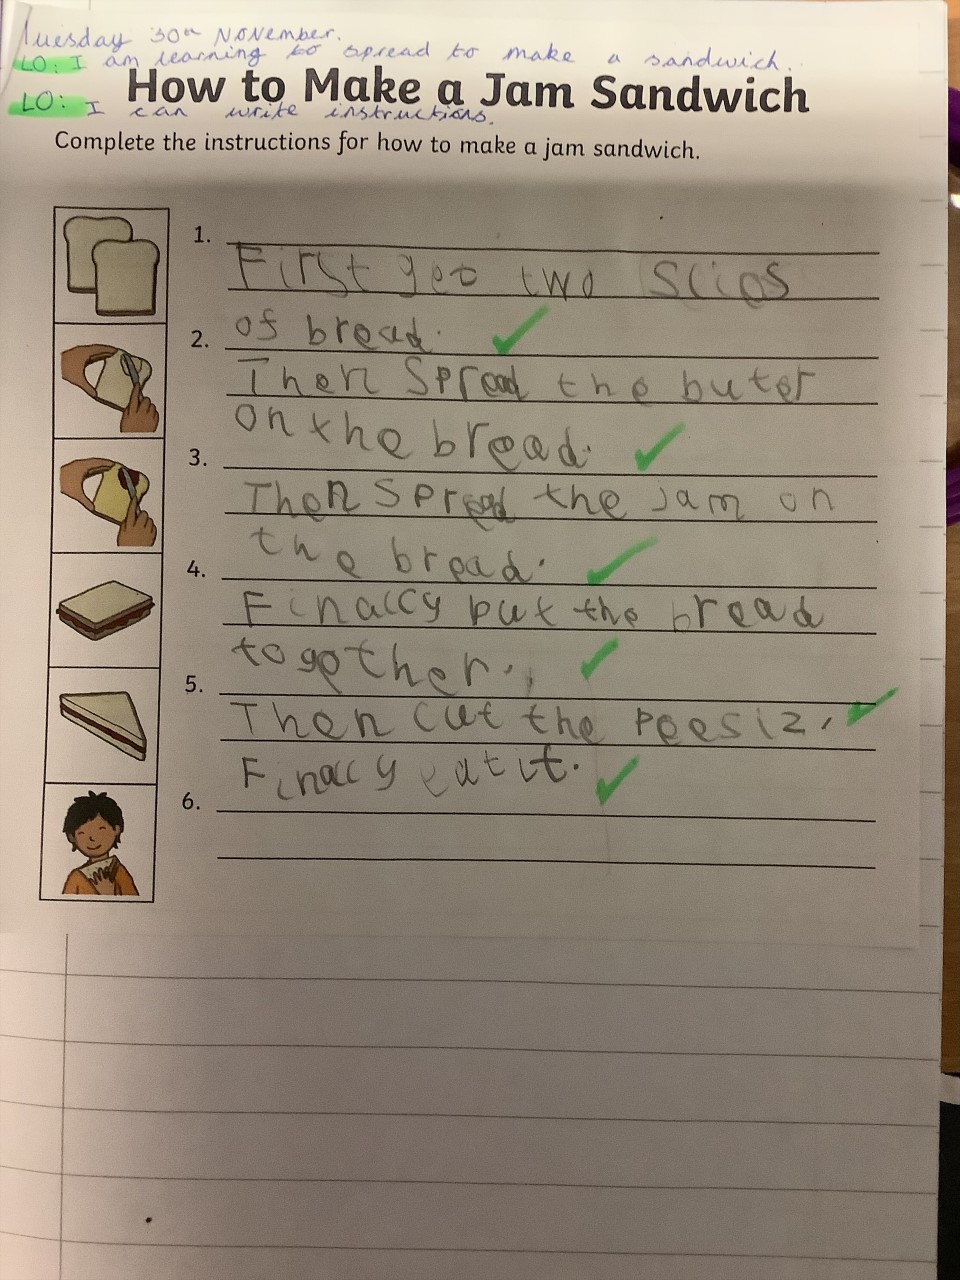 Tuesday 30th November.
LO: I am learning to spread to make a sandwich.
How to Make a Jam Sandwich
LO: I can write instructions.
Complete the instructions for how to make a jam sandwich.
1.
First get two Slics
of bread.
2.
Then Spread the buter
on the bread.
3.
Then Spread the jam on
the bread.
4.
Finally put the bread
together.
5.
Then cut the peesiz.
Finally eat it.
6.